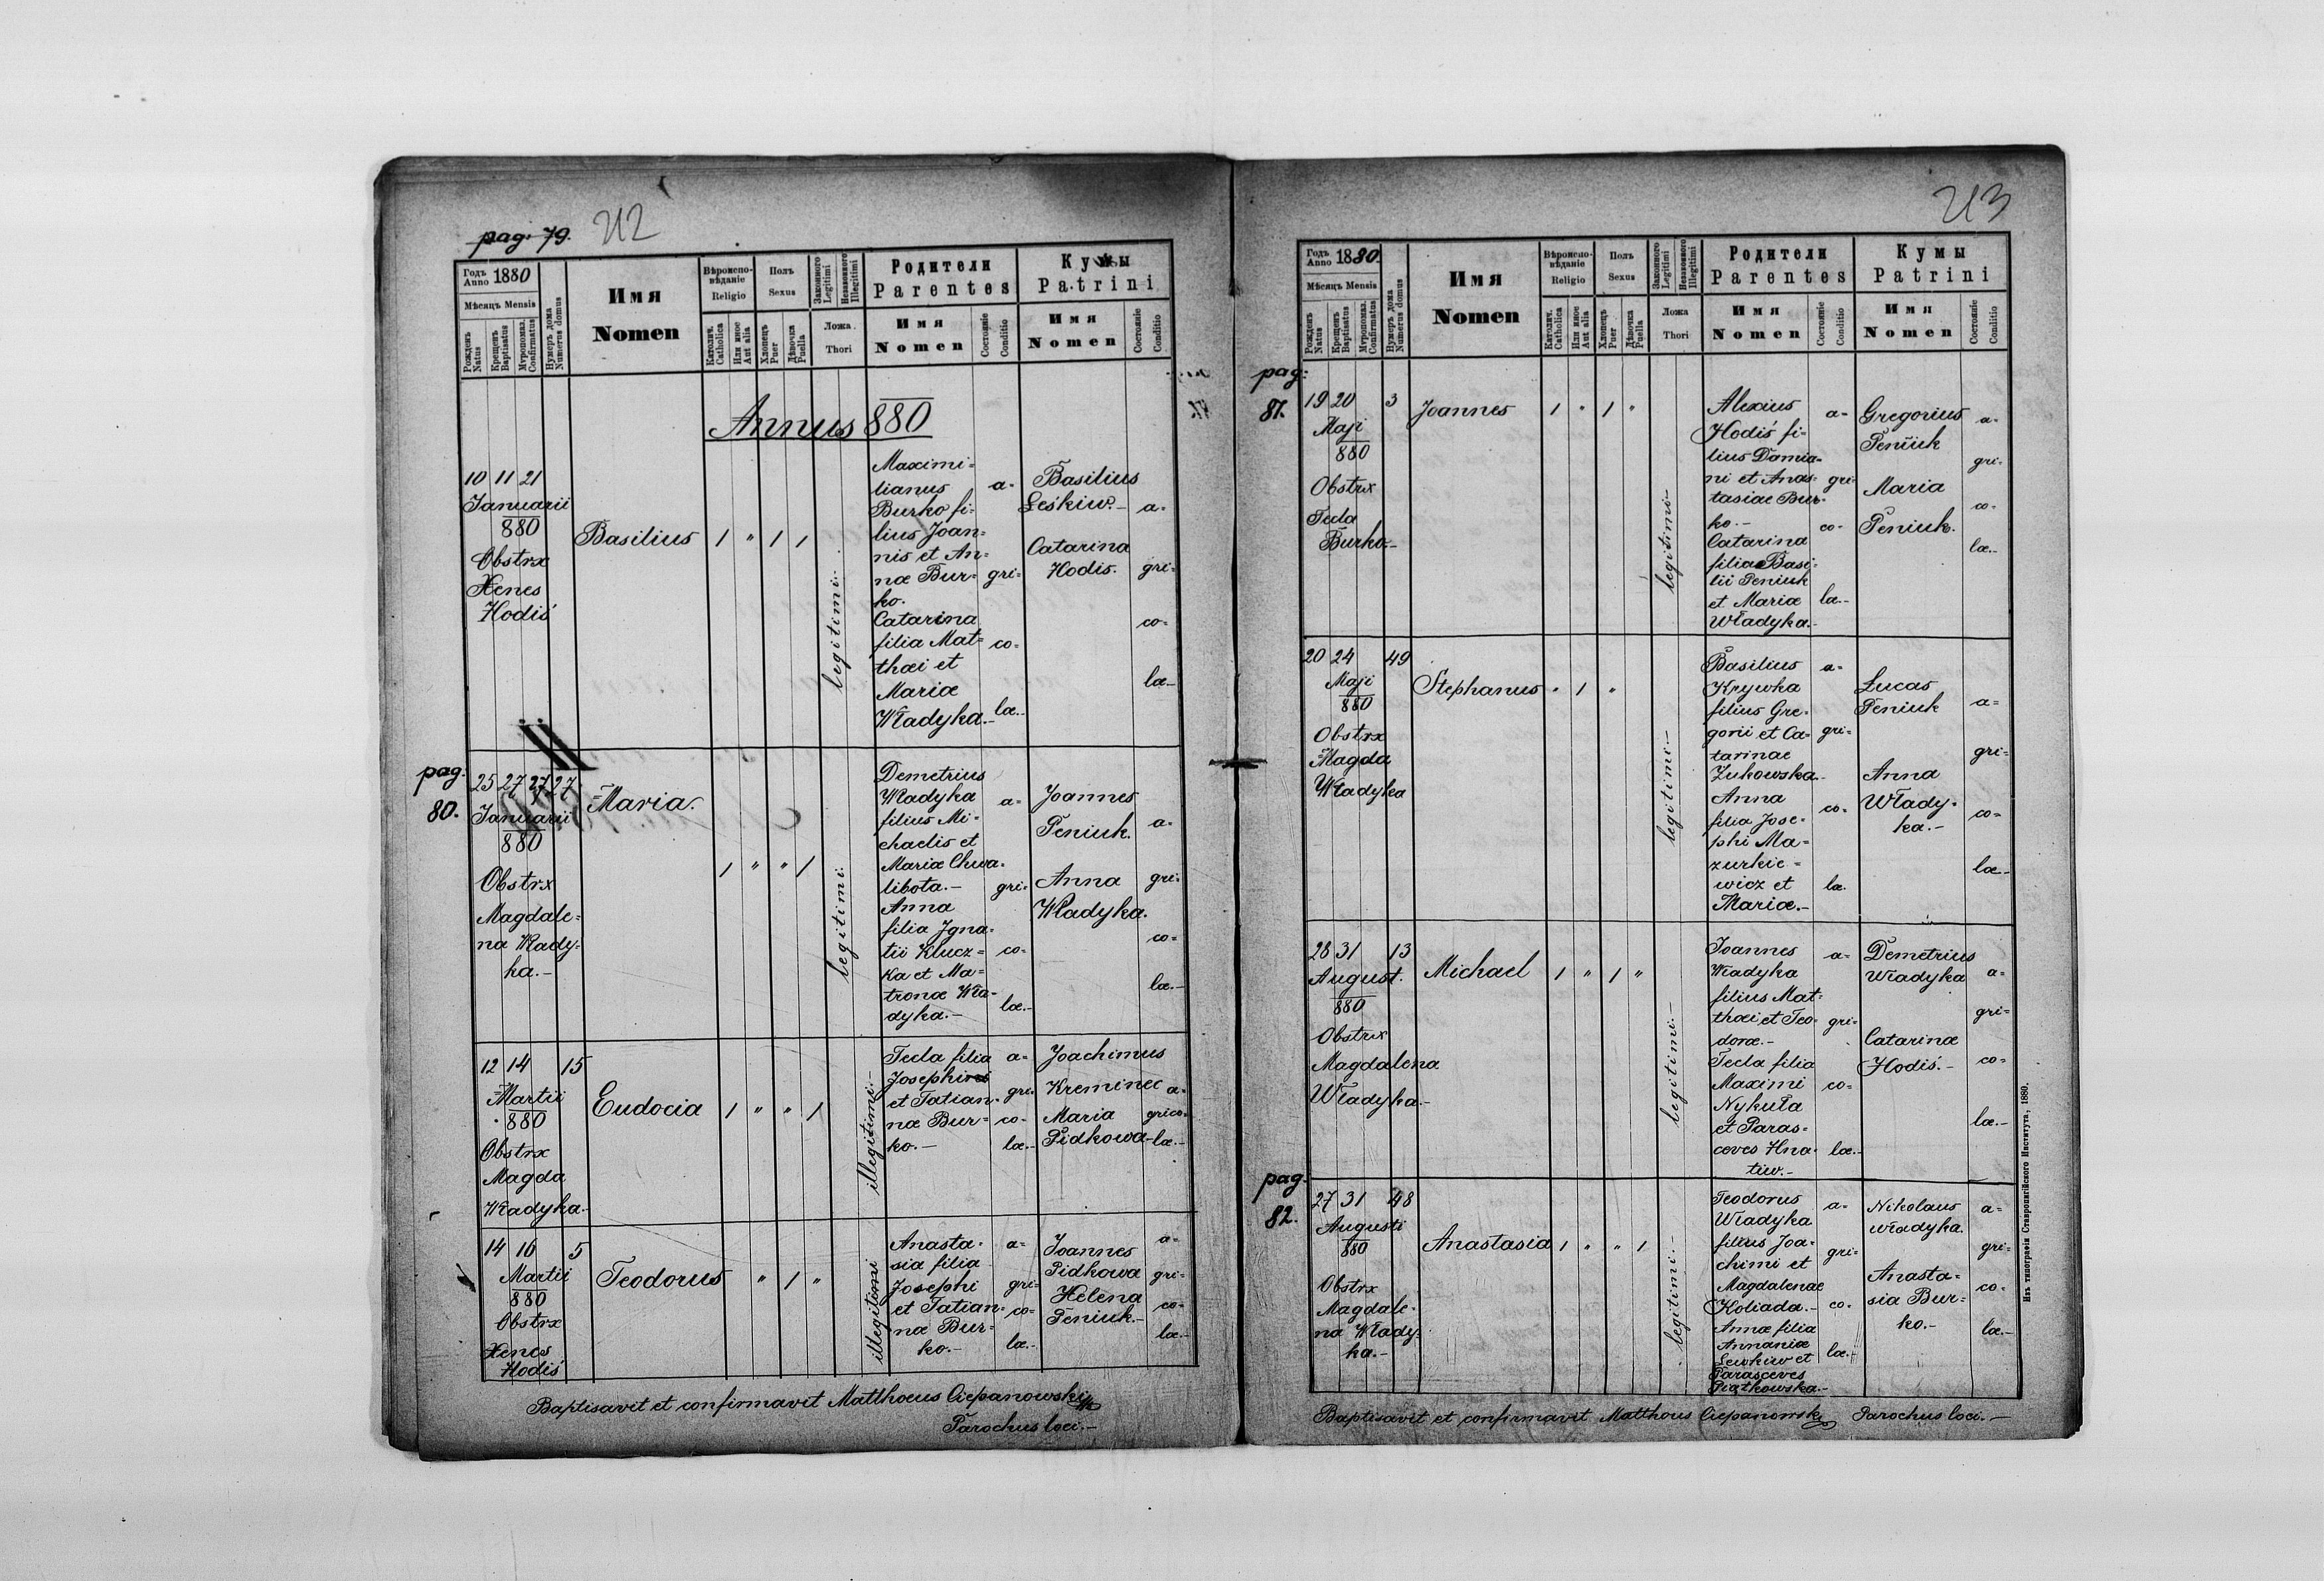 pag. 79. 212
Годъ Anno 1880
Мѣсяцъ Mensis
Рожденъ Natus
Крещенъ Baptisatus
Мѵропомаз. Confirmatus
Нумеръ дома Numerus domus
Имя Nomen
Вѣроисповѣданіе Religio
Католич. Catholica
Или иное Aut alia
Полъ Sexus
Хлопецъ Puer
Дѣвочка Puella
Законного Legitimi
Незаконного Illegitimi
Ложа Thori
Родители Parentes
Имя Nomen
Состояніе Conditio
Кумы Patrini
Имя Nomen
Состояніе Conditio
Annus 880
10 11 21
Januarii
880
Obstrx
Xenes
Hodiś
Basilius
1 " 1 1
legitimi.-
Maximi=
lianus
Burko fi=
lius Joan=
nis et An=
næ Bur=
ko.
Catarina
filia Mat=
thæi et
Mariæ
Władyka.-
a=
gri=
co=
læ.-
Basilius
Leśkiw.-
Catarina
Hodis.
a=
gri=
co=
læ-
pag.
80.
25 27 27 27
Januarii
880
Obstrx
Magdale=
na Włady=
ka.-
Maria.
1 " " 1
legitimi.
Demetrius
Władyka
filius Mi=
chaelis et
Mariæ Chwa=
libota.-
Anna
filia Igna=
tii Klucz=
ka et Ma=
tronæ Wła-
dyka.-
a=
gri=
co=
læ.-
Joannes
Peniuk.
Anna
Władyka.
a=
gri=
co=
læ.-
12 14 15
Martii
880
Obstrx
Magda
Władyka.-
Eudocia
1 " " 1
illegitimi.-
Tecla filia
Josephi
et Tatian=
næ Bur=
ko.-
a=
gri=
co=
læ.-
Joachimus
Kreminec
Maria
Pidkowa
a=
grico=
læ.-
14 16 5
Martii
880
Obstrx
Xenes
Hodiś
Teodorus
" 1 "
illegitimi
Anasta=
sia filia
Josephi
et Tatian=
næ Bur=
ko.-
a=
gri=
co=
læ.-
Joannes
Pidkowa
Helena
Peniuk.-
a=
gri=
co=
læ.-
Baptisavit et confirmavit Matthoeus Ciepanowski
Parochus loci.-
213
Годъ Anno 1880.
Мѣсяцъ Mensis
Рожденъ Natus
Крещенъ Baptisatus
Мѵропомаз. Confirmatus
Нумеръ дома Numerus domus
Имя Nomen
Вѣроисповѣданіе Religio
Католич. Catholica
Или иное Aut alia
Полъ Sexus
Хлопецъ Puer
Дѣвочка Puella
Законного Legitimi
Незаконного Illegitimi
Ложа Thori
Родители Parentes
Имя Nomen
Состояніе Conditio
Кумы Patrini
Имя Nomen
Состояніе Conditio
pag:
81.
19 20 3
Maji
880
Obstrx
Tecla
Burko.-
Joannes
1 " 1 "
legitimi-
Alexius
Hodiś fi=
lius Damia=
ni et Anas=
tasiae Bur=
ko.-
Catarina
filia Basi=
lii Peniuk
et Mariæ
Władyka.-
a=
gri=
co=
læ.-
Gregorius
Peniuk
Maria
Peniuk.
a=
gri=
co=
læ.-
20 24 49
Maji
880
Obstrx
Magda
Władyka
Stephanus
" 1 "
legitimi.-
Basilius
Krywka
filius Gre=
gorii et Ca=
tarinae
Zukowska.-
Anna
filia Jose=
phi Ma=
zurkie=
wicz et
Mariæ.-
a=
gri=
co=
læ.
Lucas
Peniuk
Anna
Włady=
ka.-
a=
gri=
co=
læ-
28 31 13
August.
880
Obstrx
Magdalena
Władyka.-
Michael
1 " 1 "
legitimi.-
Joannes
Władyka
filius Mat=
thæi et Teo=
doræ.-
Tecla filia
Maximi
Nykuła
et Paras=
ceves Hna=
tiw.-
a=
gri=
co=
læ.-
Demetrius
Władyka
Catarinæ
Hodiś.-
a=
gri=
co=
læ.-
pag.
82.
27 31 48
Augusti
880
Obstrx
Magdale=
na Włady=
ka.-
Anastasia
1 " " 1
legitimi.-
Teodorus
Władyka
filius Joa=
chimi et
Magdalenae
Koliada.-
Annæ filia
Annaniæ
Lewkiw et
Parasceves
Piątkowska.-
a=
gri=
co=
læ.-
Nikolaus
Władyka.
Anasta=
sia Bur=
ko.-
a=
gri=
co=
læ.-
Baptisavit et confirmavit Matthous Ciepanowski Parochus loci.-
Изъ типографіи Ставропигійского Института, 1880.